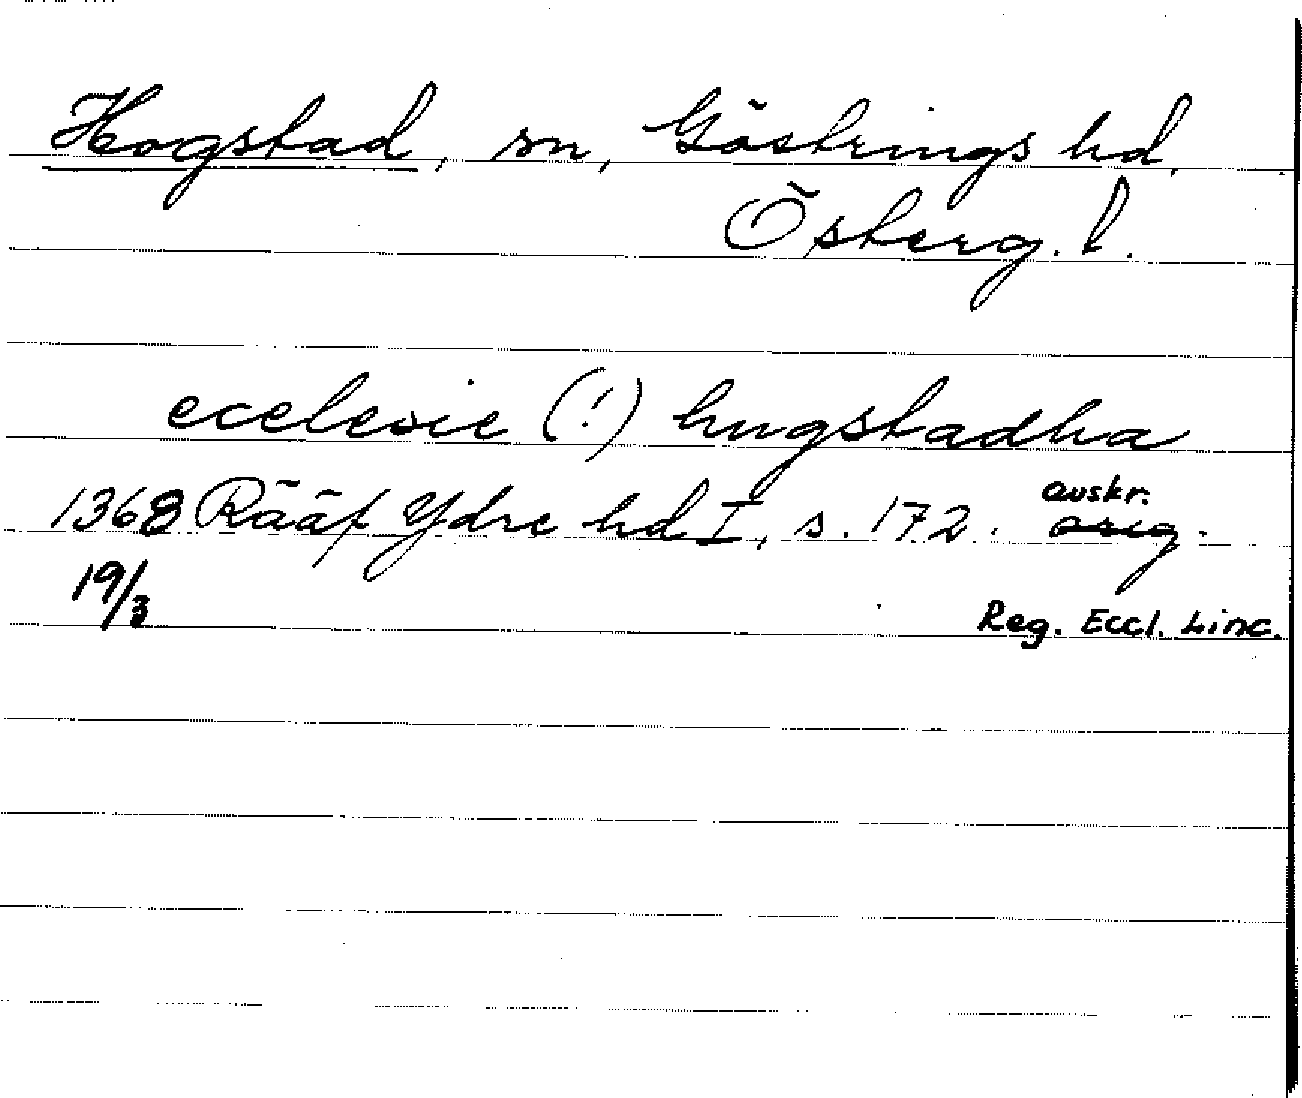 Hogstad, sn, Göstrings hd,
Österg. l.
ecclesie (!) hugstadha
1368 Rääf Ydre hd I, s. 172. avskr. orig.
19/3
Reg. Eccl. Linc.